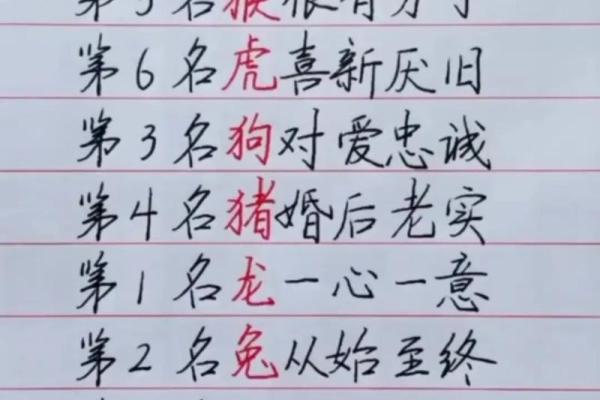 第5名猴很有才了
第6名虎喜新厌旧
第3名狗对爱忠诚
第4名猪婚后老实
第1名龙一心一意
第2名兔从始至终